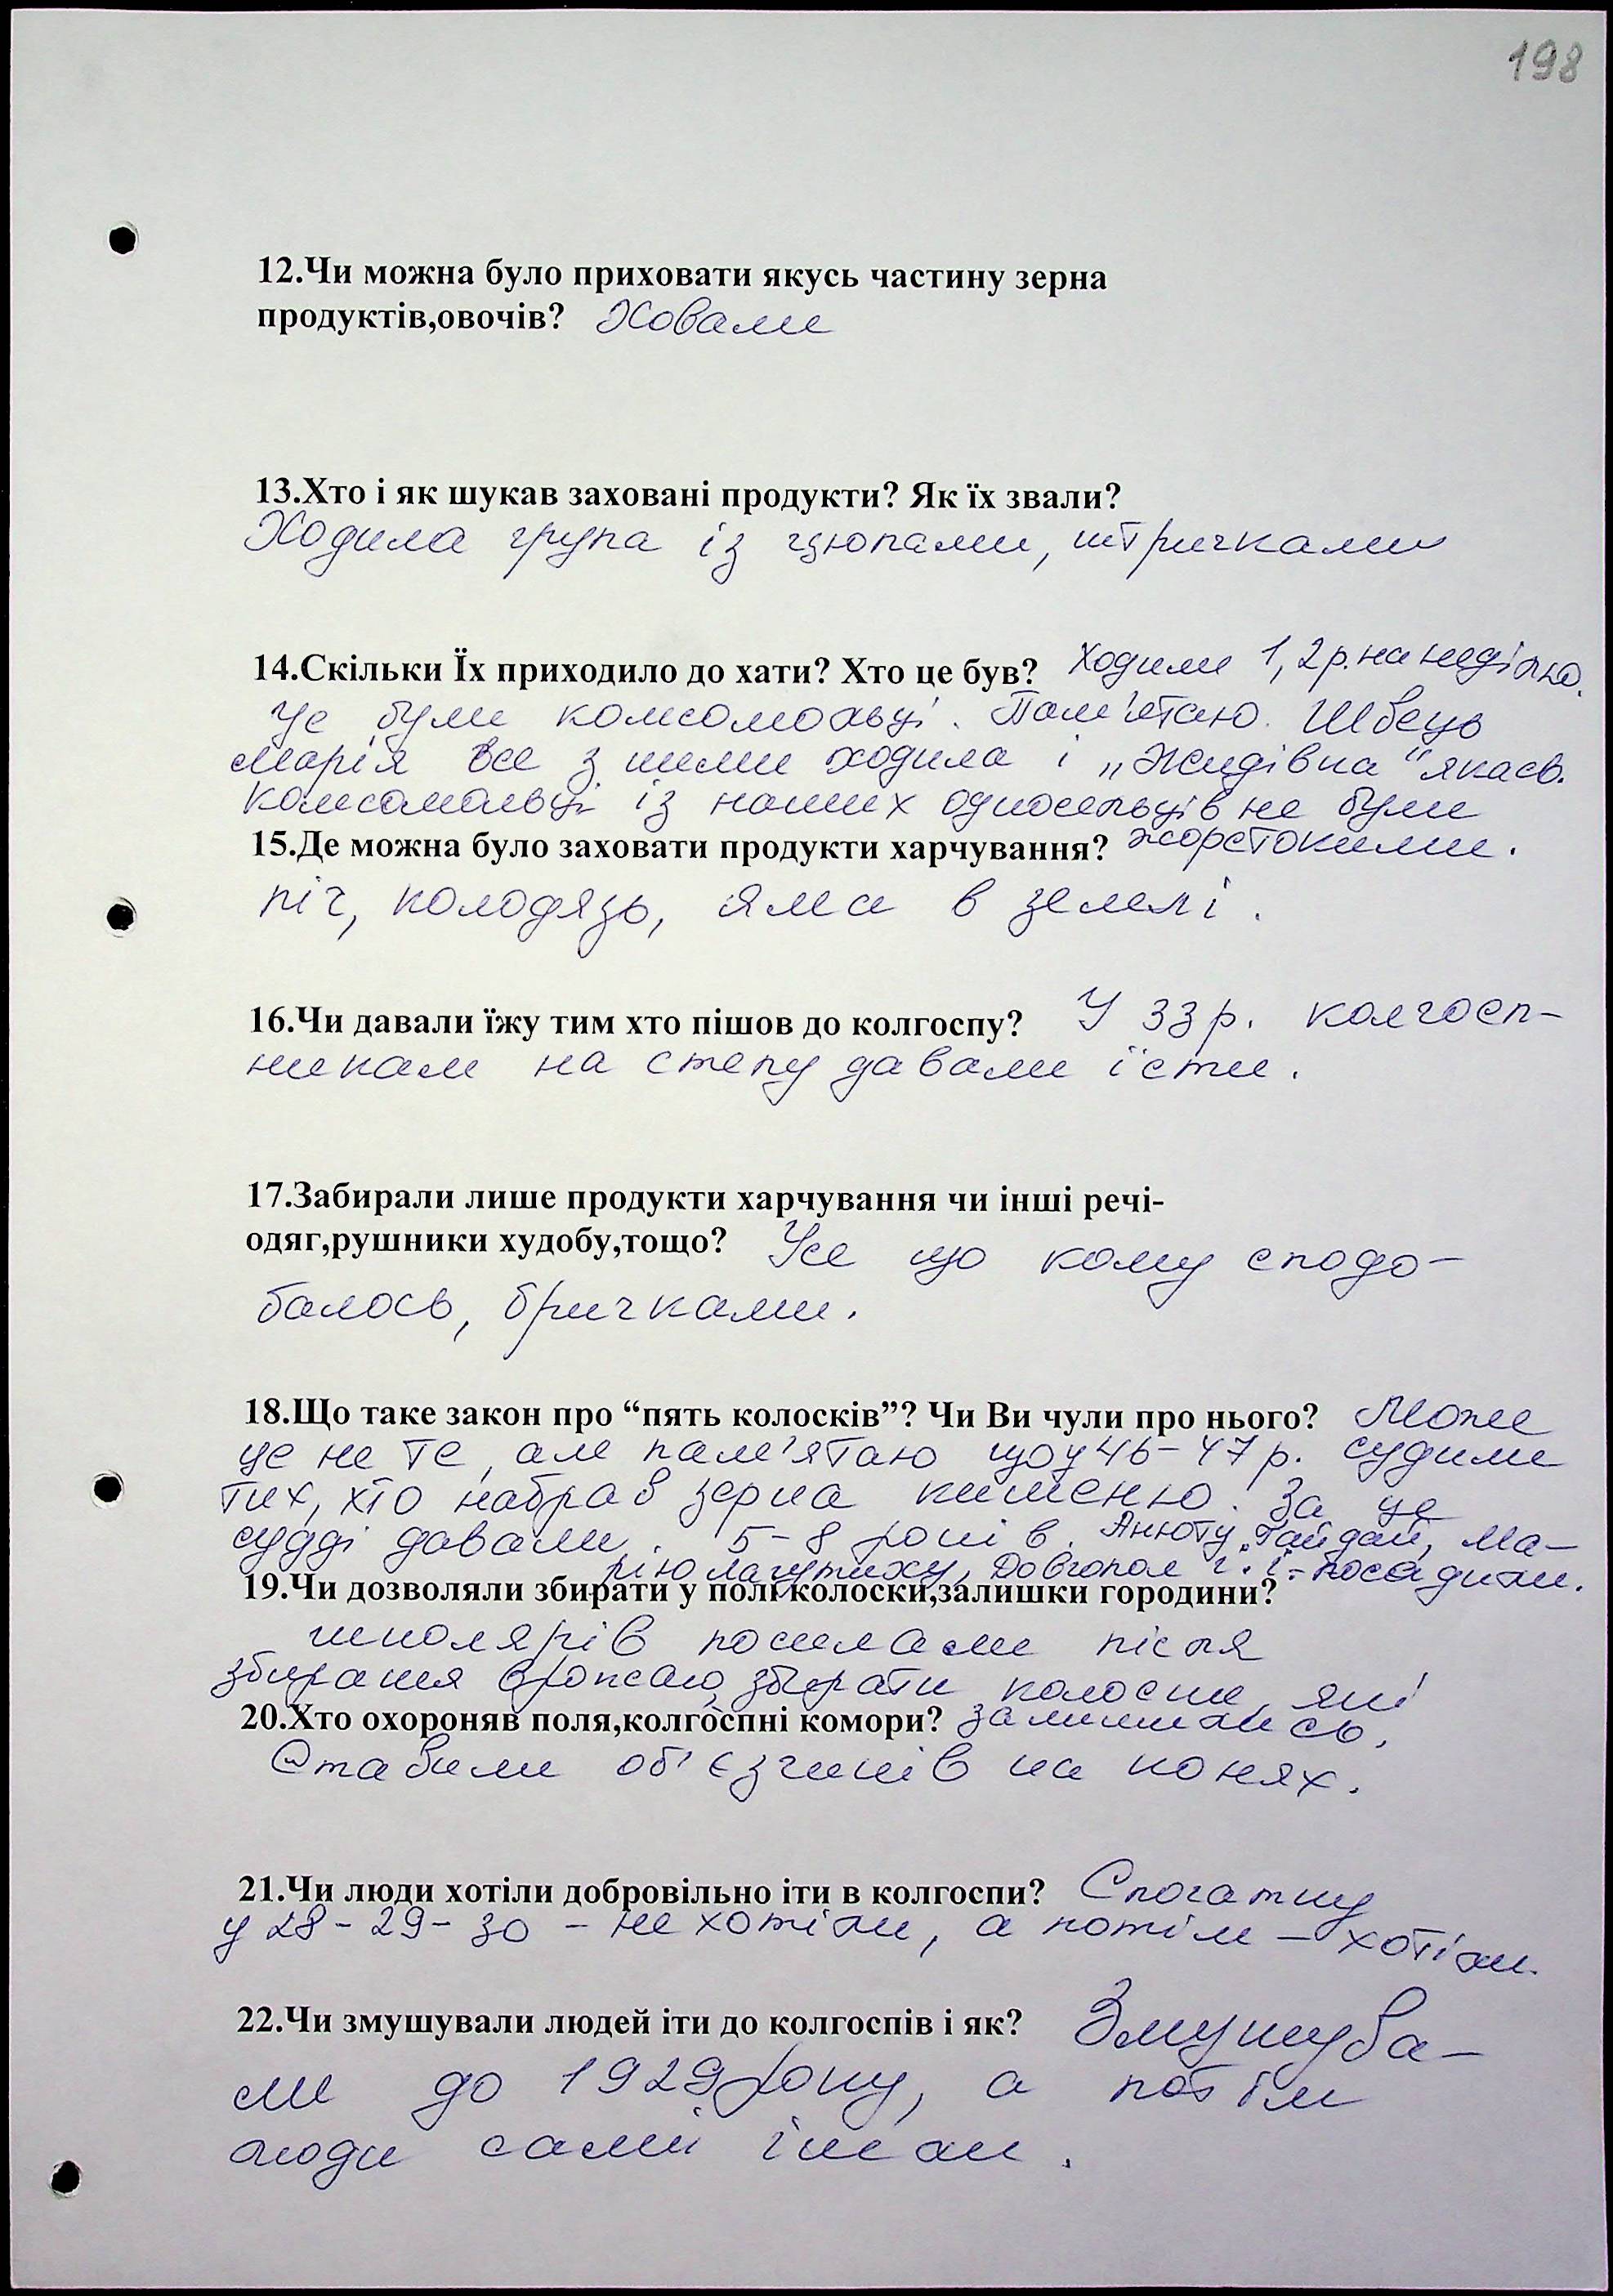 198
12.Чи можна було приховати якусь частину зерна
продуктів,овочів? Ховали
13.Хто і як шукав заховані продукти? Як їх звали?
Ходила група із цюпами, штричками
14.Скільки Їх приходило до хати? Хто це був? Ходили 1, 2 р. на неділю.
Це були комсомольці. Пам'ятаю Швець
Марія все з ними ходила і „Жидівка" якась.
Комсомольці із наших односельців не були
жорстокими.
15.Де можна було заховати продукти харчування?
піч, колодязь, яма в землі.
16.Чи давали їжу тим хто пішов до колгоспу? У 33 р. колгосп-
никам на степу давали їсти.
17.Забирали лише продукти харчування чи інші речі-
одяг,рушники худобу,тощо? Усе що кому сподо-
балось, бричками.
18.Що таке закон про “пять колосків”? Чи Ви чули про нього? Може
це не те, але пам'ятаю що у 46-47 р. судили
тих, хто набрав зерна кишеню. За це
судді давали 5-8 років. Анюту Гайдай, Ма-
рію Лагутиху, Довгопол Г. І. - посадили.
19.Чи дозволяли збирати у полі колоски,залишки городини?
школярів посилали після
збирання врожаю збирати колоски, які
залишились.
20.Хто охороняв поля,колгоспні комори?
Ставили об'єзчиків на конях.
21.Чи люди хотіли добровільно іти в колгоспи? Спочатку
у 28-29-30 - не хотіли, а потім - хотіли.
22.Чи змушували людей іти до колгоспів і як? Змушува-
ли до 1929 року, а потім
люди самі ішли.